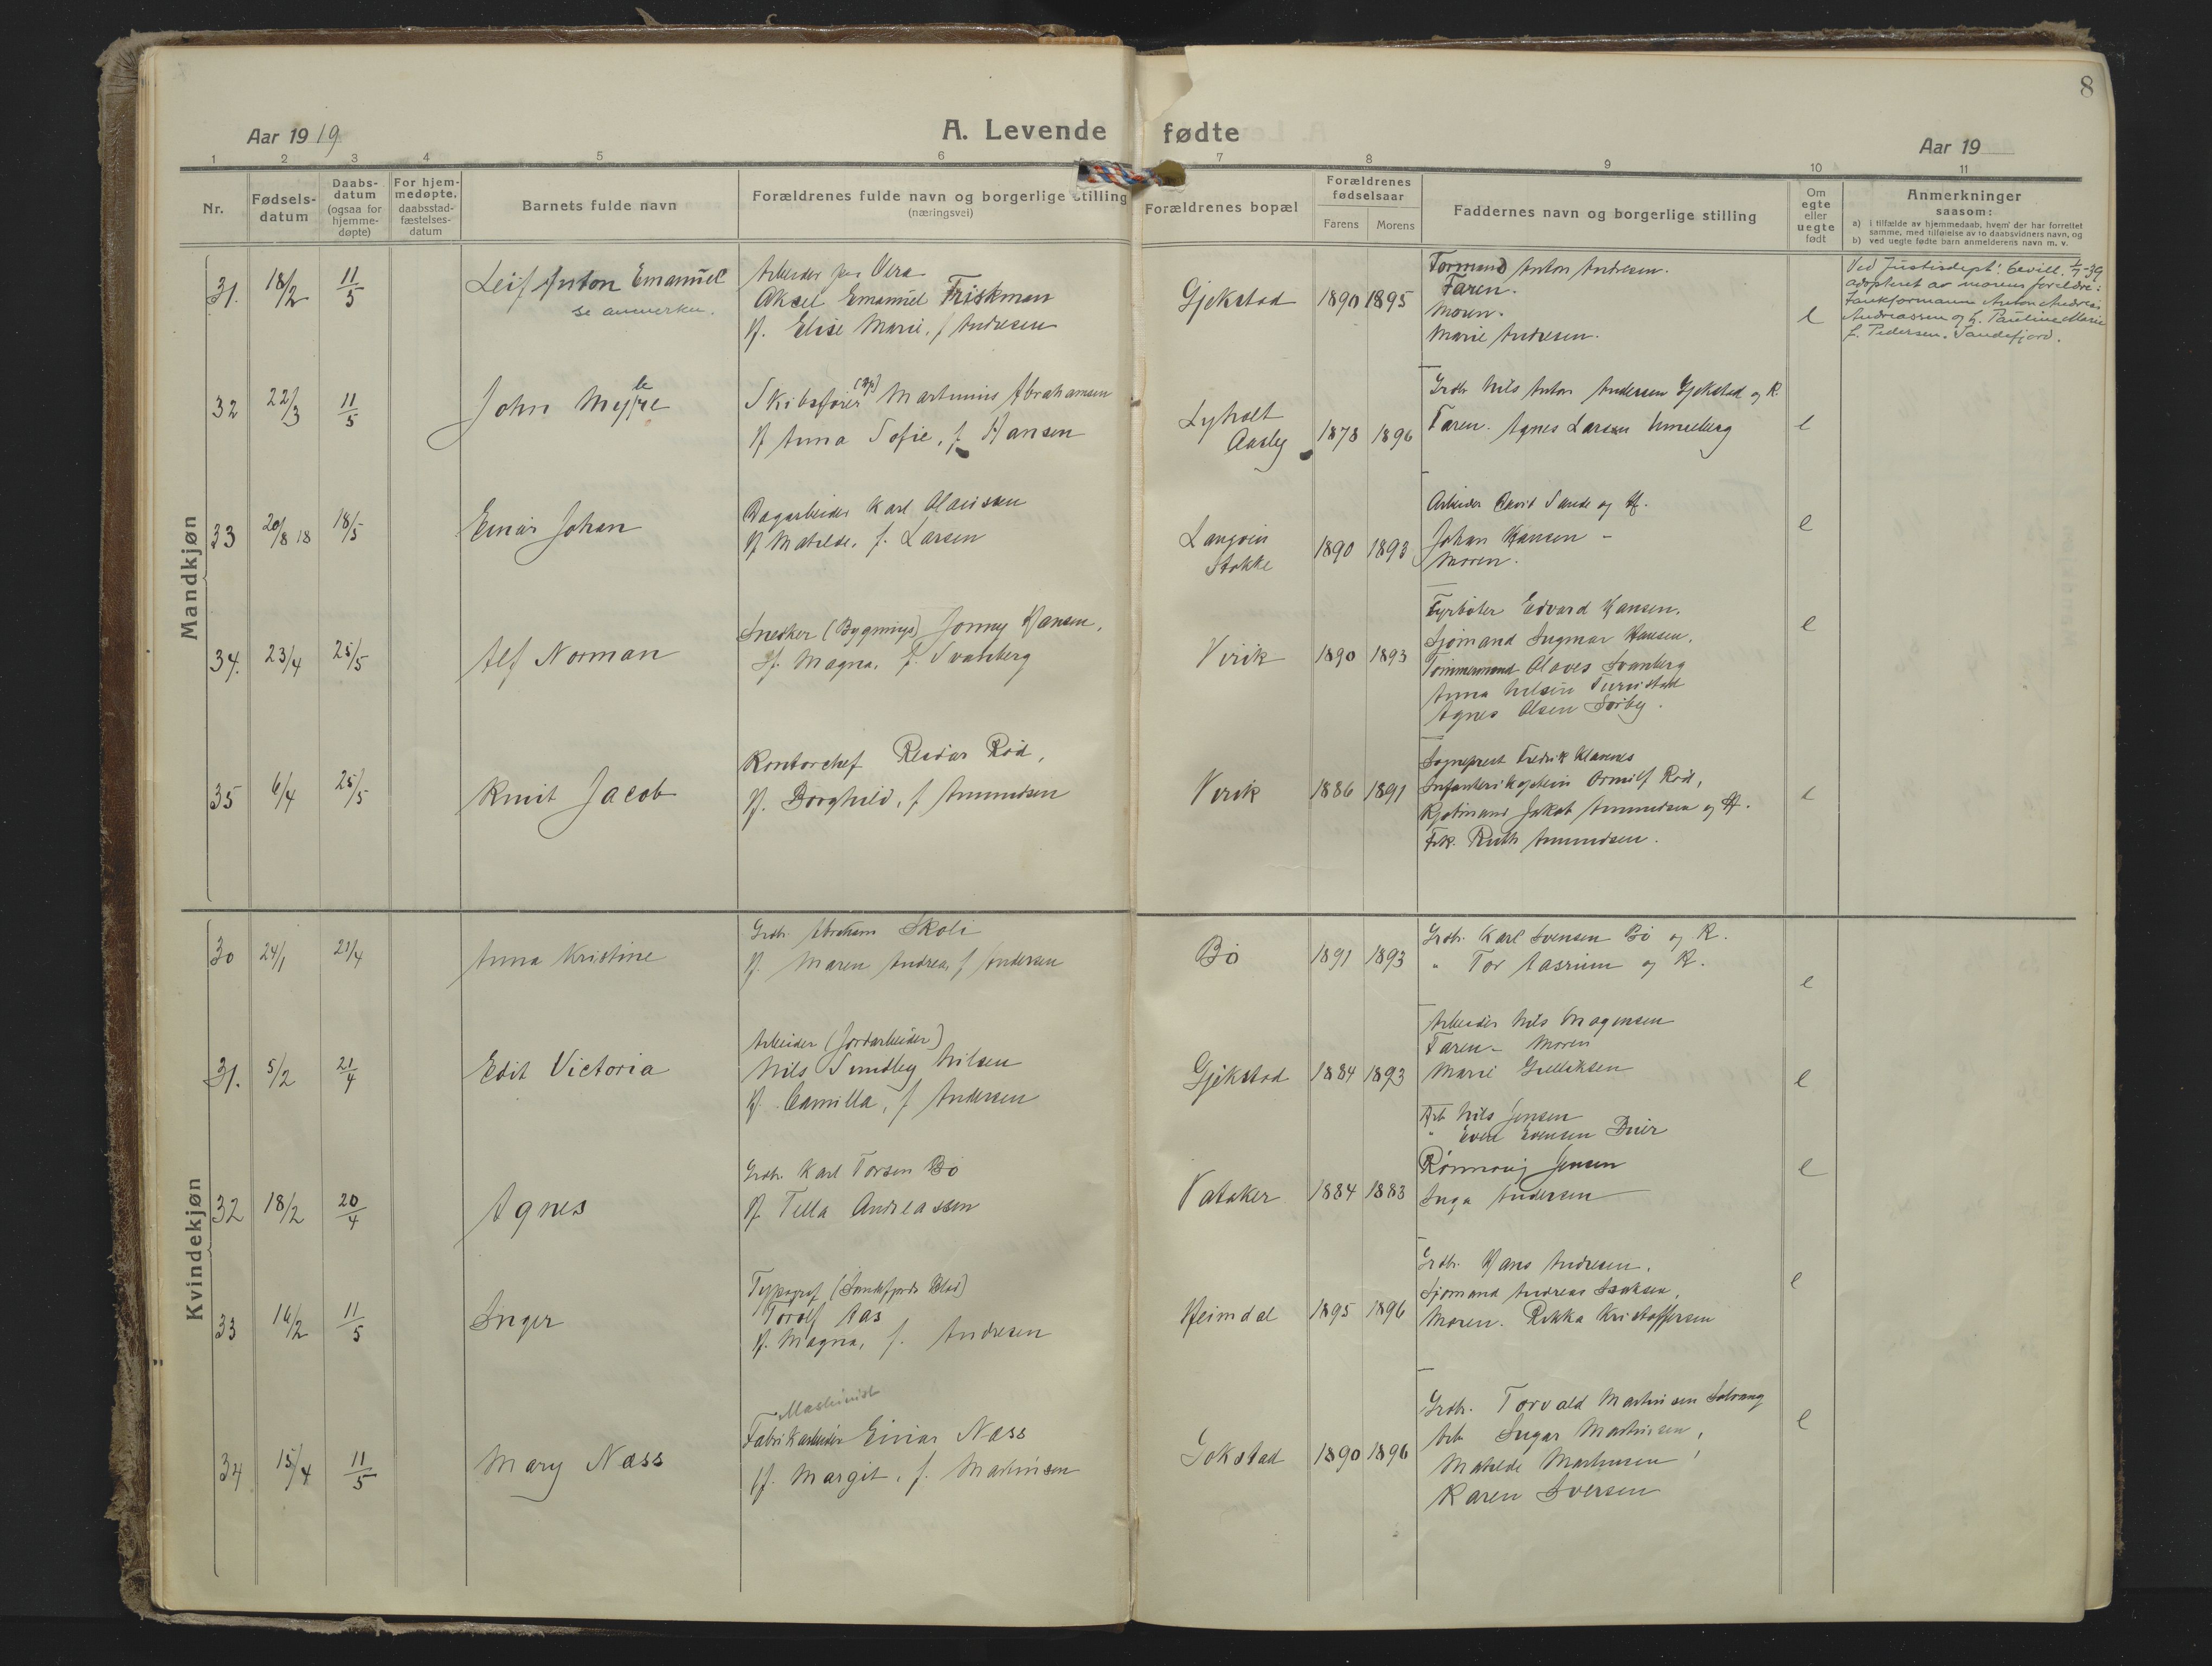 8
Aar 1919
A. Levende fødte
Aar 19
1 2 3 4 5 6 7 8 9 10 11
Nr.
Fødsels-
datum
Daabs-
datum
(ogsaa for
hjemme-
døpte)
For hjem-
medøpte,
daabsstad-
fæstelses-
datum
Barnets fulde navn
Forældrenes fulde navn og borgerlige stilling
(næringsvei)
Forældrenes bopæl
Forældrenes
fødselsaar
Farens Morens
Faddernes navn og borgerlige stilling
Om
egte
eller
uegte
født
Anmerkninger
saasom:
a) i tilfælde av hjemmedaab, hvem der har forrettet
samme, med tilføielse av to daabsvidners navn, og
b) ved uegte fødte barn anmelderens navn m. v.
Mandkjøn
31. 18/2 11/5 Leif Anton Emanuel
se anmerkn.
Arbeider paa Vera
Aksel Emanuel Friskman
H. Elise Marie, f Andresen
Gjekstad 1890 1895
Formand Anton Andresen.
Faren.
Moren.
Marie Andresen.
e
Ved Justisdept. bevill. 1/7-39
adopteret av morens forældre:
Tankformann Anton Andreas
Andreassen og h. Pauline Marie
f. Pedersen, Sandefjord.
32 22/3 11/5 John
Skibsfører Martinius Abrahamsen
H Anna Sofie, f Hansen
Lyholt
Aasly 1878 1896
Grdb. Nils Anton Andersen Gjekstad og K.
Faren. Agnes Larsen
e
33 20/8 18 18/5 Einar Johan
Dagarbeider Karl Olavssen
H Matilde, f. Larsen
Stokke 1890 1893
Arbeider David Sande og H.
Johan Hansen -
Moren.
e
34. 23/4 25/5 Alf Norman
Snedker (Bygnings) Jonny Hansen,
H. Magna, f. Svanberg
Virik 1890 1893
Fyrbøter Edvard Hansen.
Sjømand Ingmar Hansen,
Tømmermand Olaves Svanberg
Anna Nilsen
Agnes Olsen Sørby.
e
35 6/4 25/5 Knut Jacob
Kontorchef Reidar Rød,
H. Borghild, f Amundsen
Virik 1886 1891
Sogneprest Fredrik Klavenes
Infanterikaptein Ormulf Rød,
Kjøbmand Jakob Amundsen og H.
Frk. Ruth Amundsen.
e
Kvindekjøn
30 24/1 21/4 Anna Kristine
Grdb. Abraham Skoli
H. Maren Andrea, f Andersen
Bø 1891 1893
Grdb. Karl Svensen Bø og K.
" Tor Aasrum og K.
e
31. 5/2 21/4 Edit Victoria
Arbeider (Jordarbeider)
Nils Sundby Nilsen
H. Camilla, f Andersen
Gjekstad 1884 1893
Arbeider Nils Magnusen
Faren - Moren
Marie Gulliksen
e
32 18/2 20/4 Agnes
Grdb. Karl Torsen Bø
H Tella Andreassen
Vataker 1884 1883
Arb. Nils Jensen
" Even Evensen
Rønnoug Jensen
Inga Andersen
e
33 16/2 11/5 Inger
Typograf (Sandefjords Blad)
Torolf Aas
H. Magna, f. Andresen
Heimdal 1895 1896
Grdb. Hans Andresen.
Sjømand Andreas Isaksen,
Moren. Rikka Kristoffersen
e
34 15/4 11/5 Mary Næss
Maskinist
Fabrikarbeider Einar Næss
H. Margit, f. Martinsen
Gokstad 1890 1896
Grdb. Torvald Martinsen Solvang
Arb. Ingar Martinsen,
Matilde Martinsen,
Karen Iversen
e